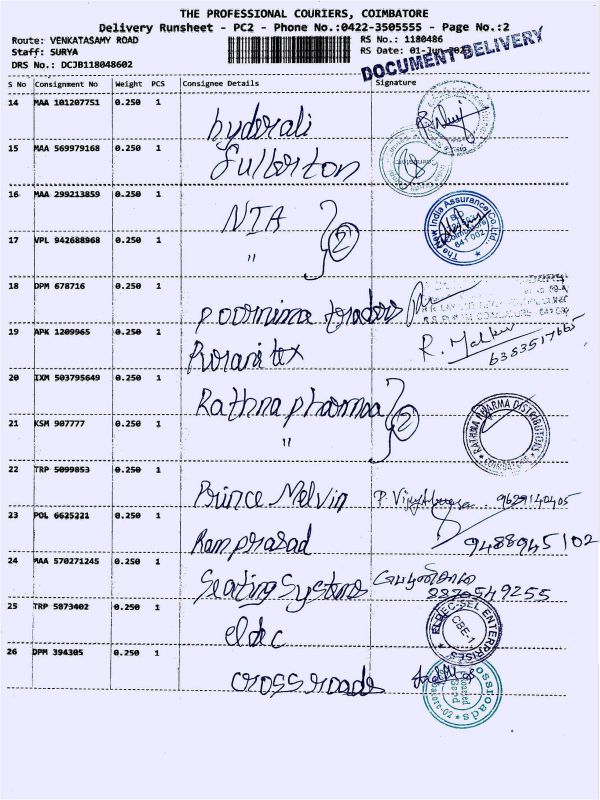 THE PROFESSIONAL COURIERS, COIMBATORE
Delivery Runsheet - PC2 - Phone No.:0422-3505555 - Page No.:2
Route: VENKATASAMY ROAD RS No.: 1180486
Staff: SURYA RS Date: 01-Jun-2023
DRS No.: DCJB118048602
DOCUMENT DELIVERY
S No Consignment No Weight PCS Consignee Details Signature
14 MAA 101207751 0.250 1
hyderali
15 MAA 569979168 0.250 1
fullerton
16 MAA 299213859 0.250 1
NIA
The New India Assurance Co. Ltd.
641 002
17 VPL 942688968 0.250 1
" 2
18 DPM 678716 0.250 1
poornima traders
19 APK 1209965 0.250 1
R.
6383517665
20 IXM 503795649 0.250 1
Rathna pharmaa
21 KSM 907777 0.250 1
" 2
RATHNA PHARMA DISTRIBUTORS
COIMBATORE
22 TRP 5099853 0.250 1
Prince Melvin 9629140405
23 POL 6625221 0.250 1
Ramprasad 9488945102
24 MAA 570271245 0.250 1
Seating Systems 8870549255
25 TRP 5873402 0.250 1
eldec
ELDEC-SEL ENTERPRISES
CBE-1
26 DPM 394305 0.250 1
cross roads